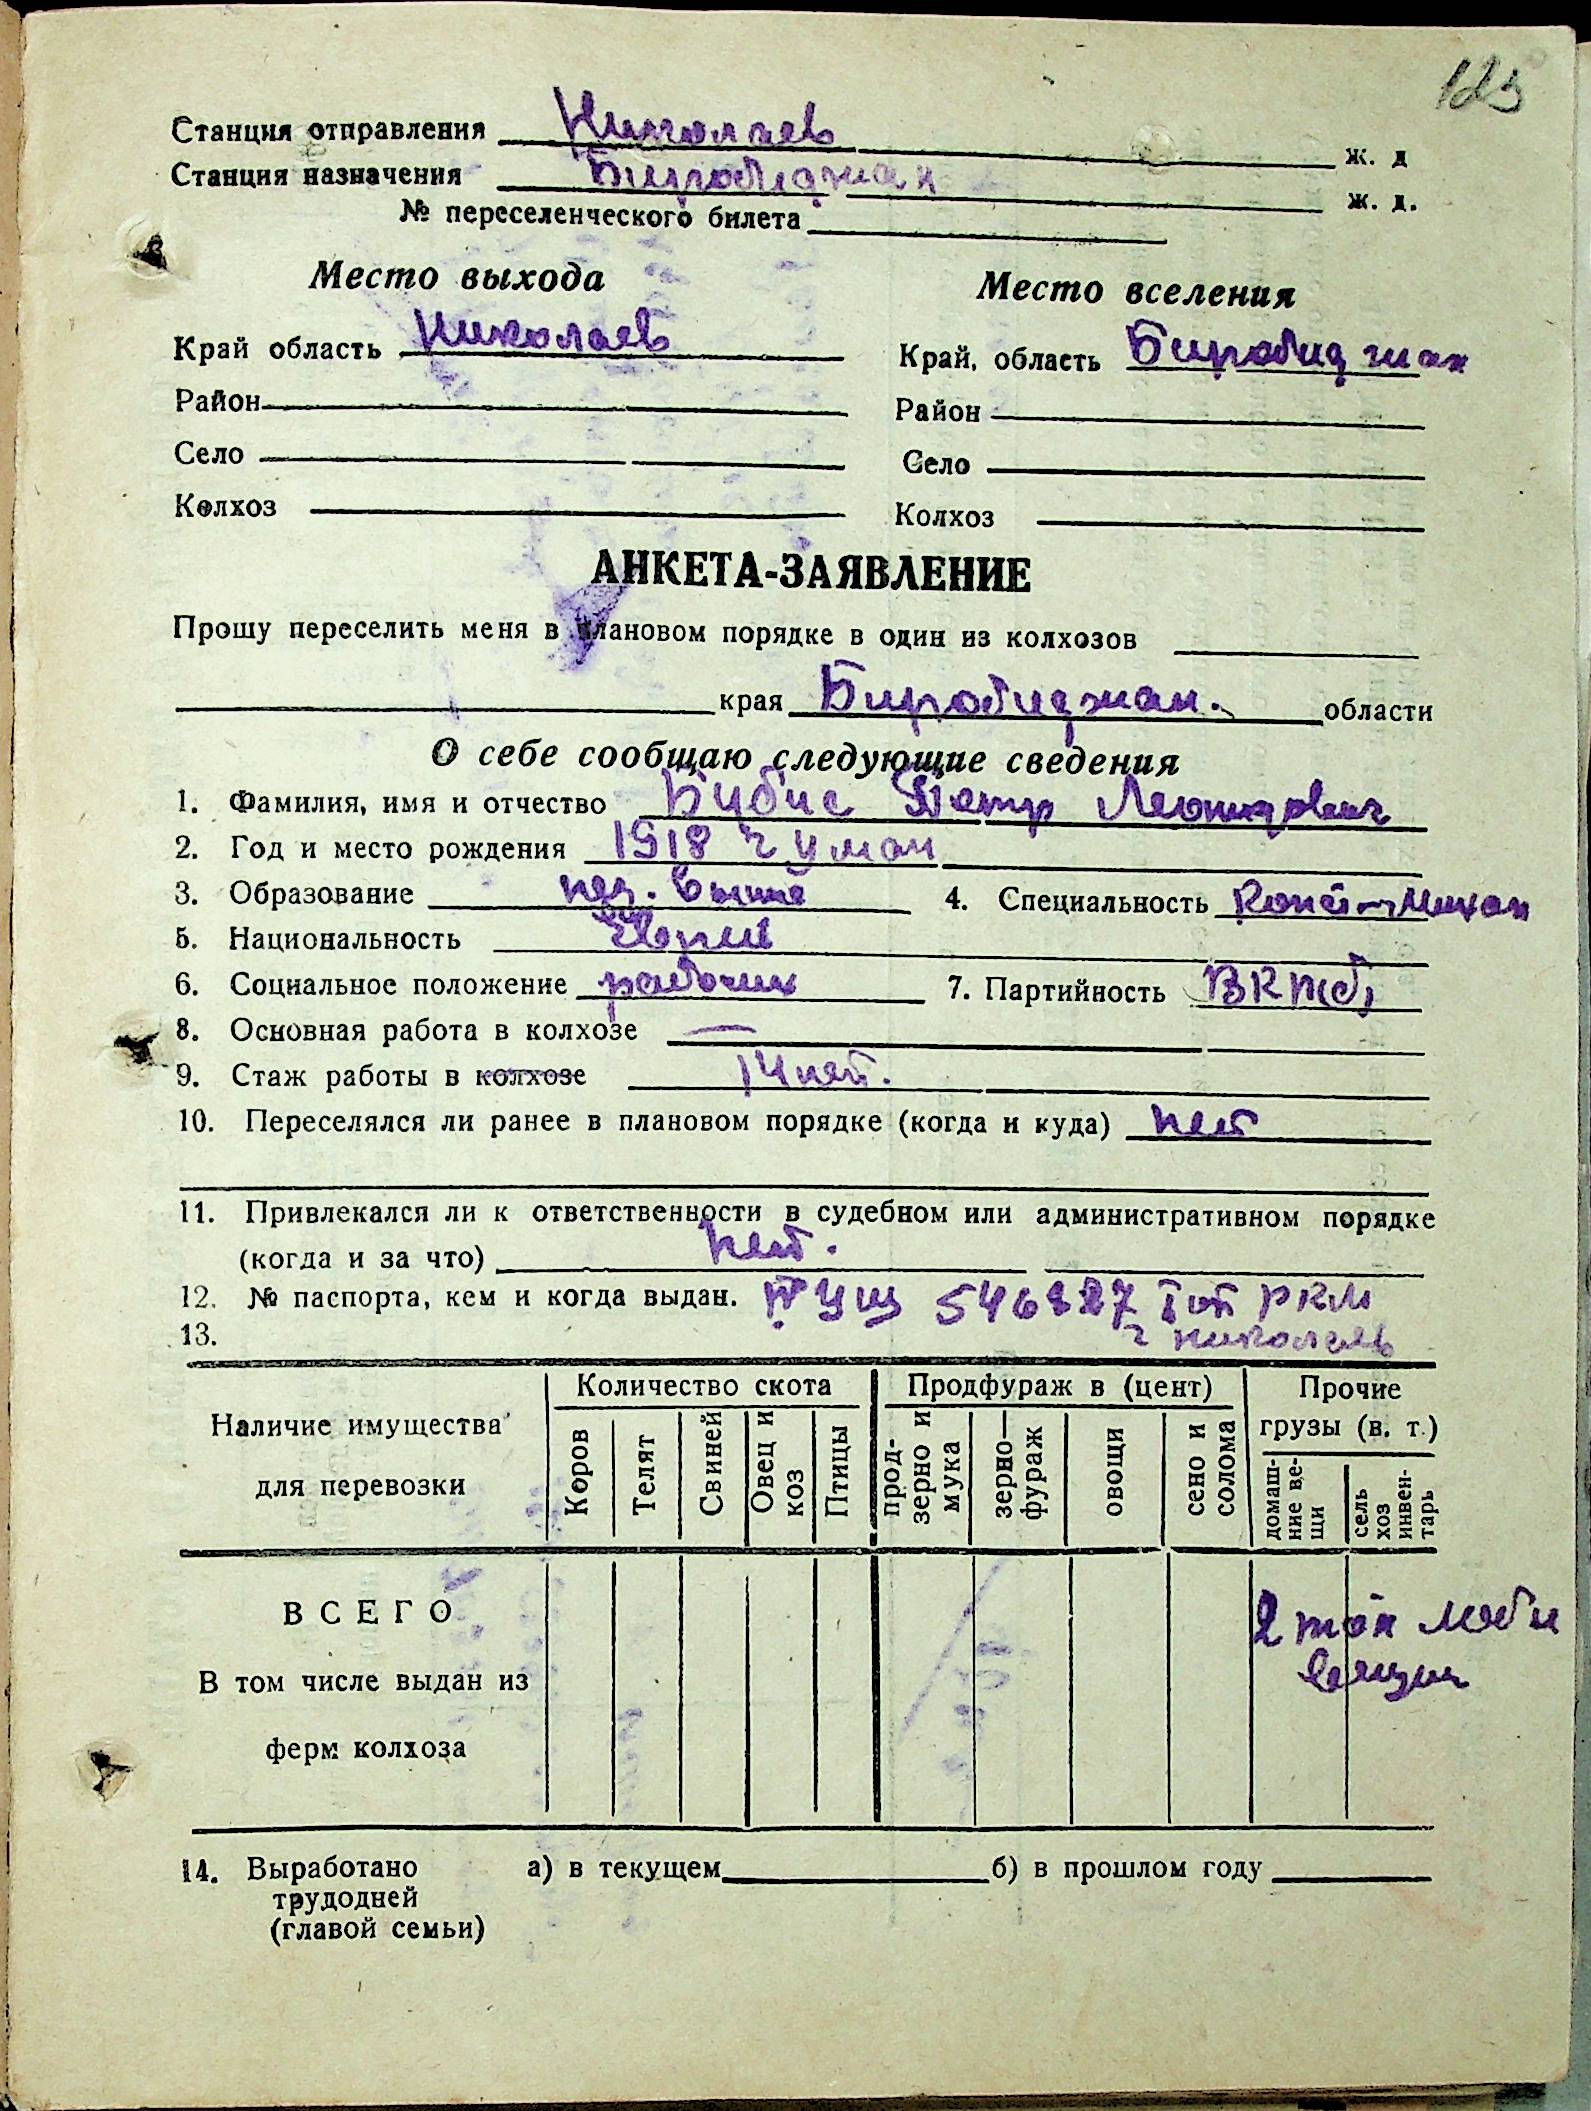 123
Станция отправления Николаев ж. д
Станция назначения Биробиджан ж. д.
№ переселенческого билета
Место выхода
Место вселения
Край область Николаев
Край, область Биробиджан
Район
Район
Село
Село
Колхоз
Колхоз
АНКЕТА-ЗАЯВЛЕНИЕ
Прошу переселить меня в плановом порядке в один из колхозов
края Биробиджан. области
О себе сообщаю следующие сведения
1. Фамилия, имя и отчество Бибис Петр Леонидович
2. Год и место рождения 1918 г Умань
3. Образование нез. высше 4. Специальность Конст-Механ
5. Национальность Еврей
6. Социальное положение рабочий 7. Партийность ВКП(б)
8. Основная работа в колхозе —
9. Стаж работы в колхозе 14 лет.
10. Переселялся ли ранее в плановом порядке (когда и куда) нет
11. Привлекался ли к ответственности в судебном или административном порядке
(когда и за что) нет.
12. № паспорта, кем и когда выдан. IV УЩ 546827 I от РКМ
13. г Николаев
Наличие имущества
для перевозки
Количество скота
Коров
Телят
Свиней
Овец и
коз
Птицы
Продфураж в (цент)
прод-
зерно и
мука
зерно—
фураж
овощи
сено и
солома
Прочие
грузы (в. т.)
домаш-
ние ве-
щи
сель
хоз
инвен-
тарь
ВСЕГО
2 тон мебн
вещи
В том числе выдан из
ферм колхоза
14. Выработано а) в текущем б) в прошлом году
трудодней
(главой семьи)